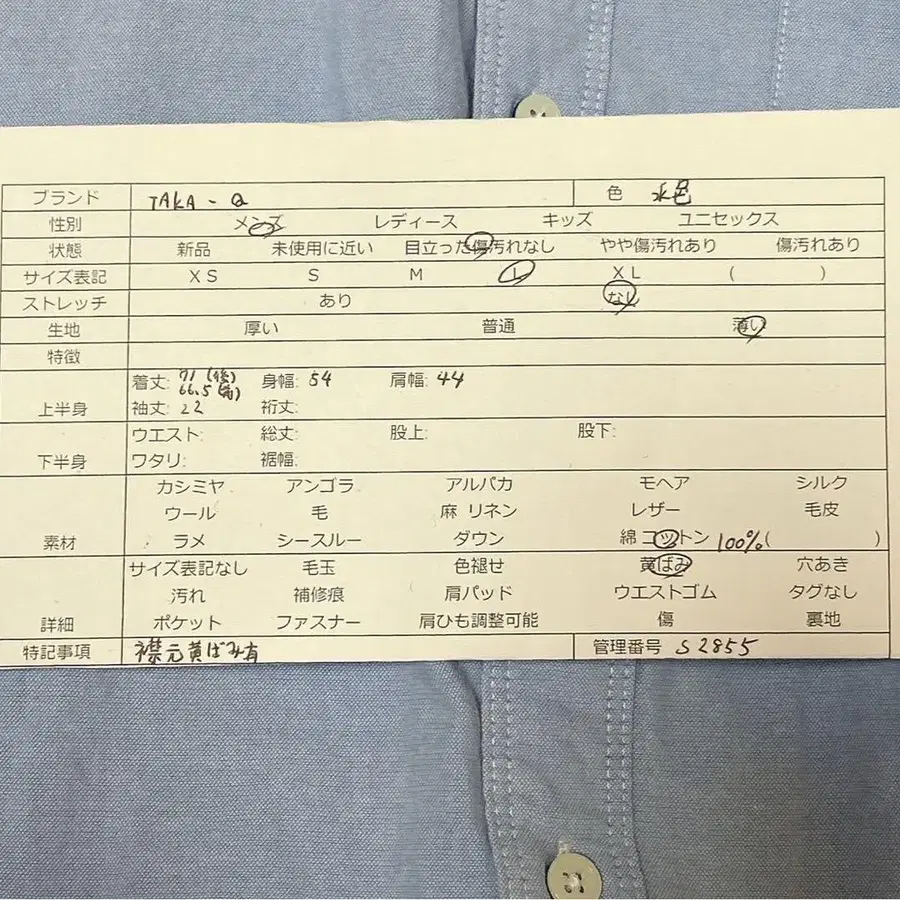 ブランド TAKA-Q 色 水色
性別 メンズ レディース キッズ ユニセックス
状態 新品 未使用に近い 目立った傷汚れなし やや傷汚れあり 傷汚れあり
サイズ表記 XS S M L XL ( )
ストレッチ あり なし
生地 厚い 普通 薄い
特徴
上半身 着丈: 71(後) 66.5(前) 身幅: 54 肩幅: 44
袖丈: 22 裄丈:
下半身 ウエスト: 総丈: 股上: 股下:
ワタリ: 裾幅:
素材 カシミヤ アンゴラ アルパカ モヘア シルク
ウール 毛 麻 リネン レザー 毛皮
ラメ シースルー ダウン 綿 コットン 100%( )
詳細 サイズ表記なし 毛玉 色褪せ 黄ばみ 穴あき
汚れ 補修痕 肩パッド ウエストゴム タグなし
ポケット ファスナー 肩ひも調整可能 傷 裏地
特記事項 襟元黄ばみ有 管理番号 S2855